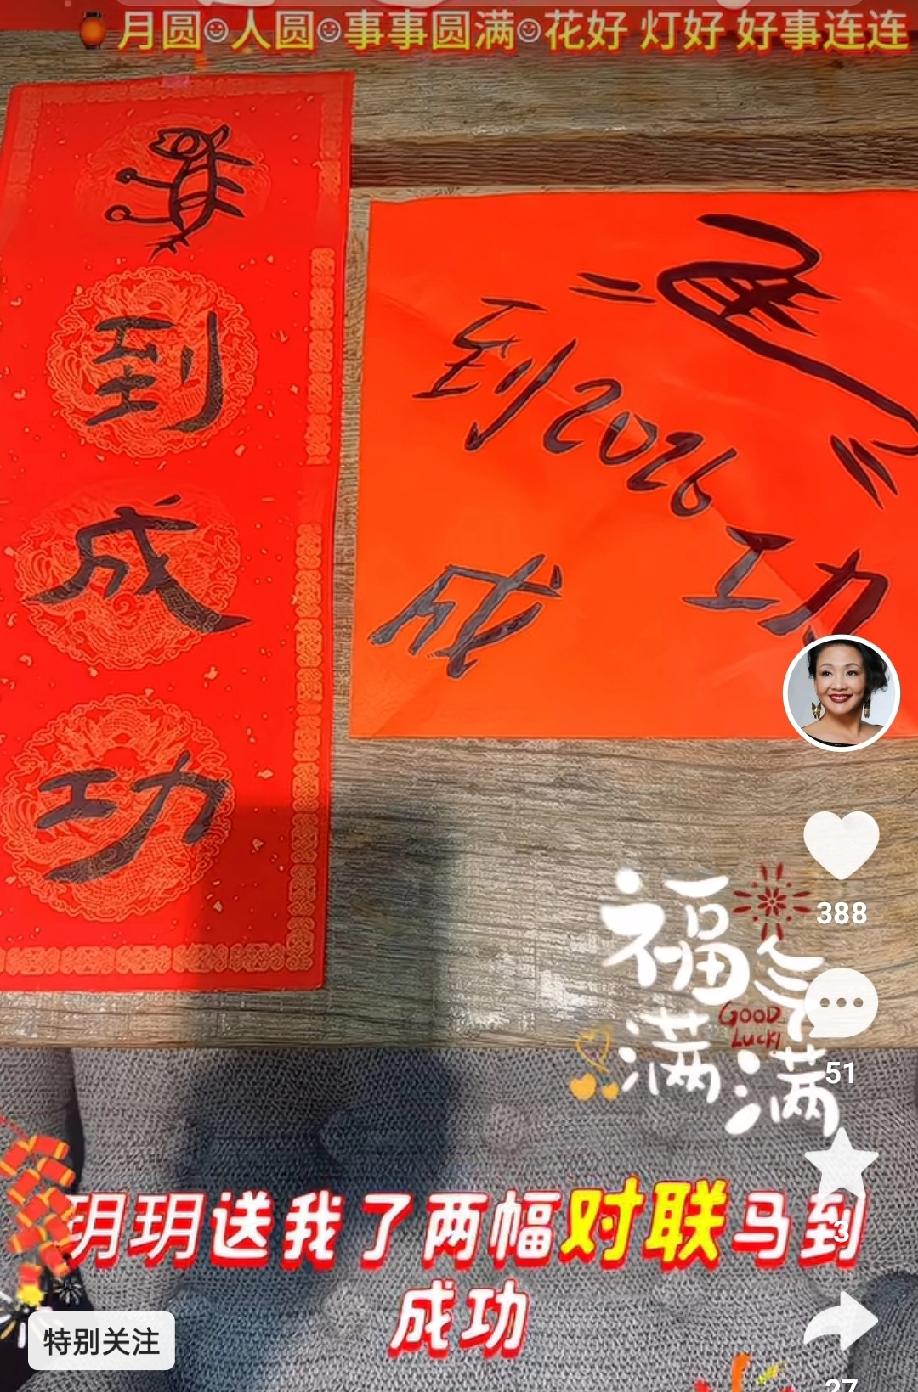 月圆人圆事事圆满花好 灯好 好事连连
到
成
功
到2026
成
工力
福气
满满
GOOD
LUCK!
388
51
3
玥玥送我了两幅对联马到
成功
特别关注
27